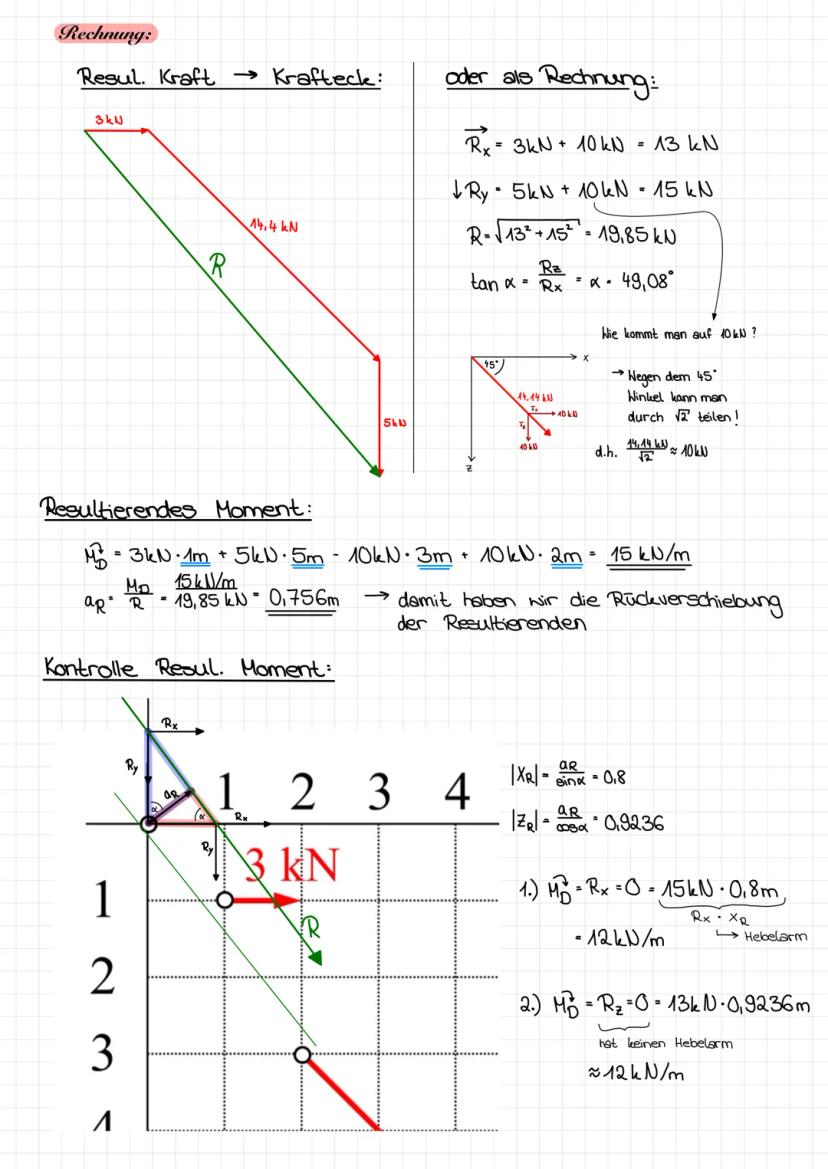 Rechnung:
Resul. Kraft → Krafteck:
3kN
14,4 kN
R
5kN
oder als Rechnung:
Rx = 3kN + 10kN = 13 kN
↓Ry = 5kN + 10kN = 15 kN
R = √13² + 15² = 19,85 kN
tan α = Rz/Rx = α = 49,08°
Wie kommt man auf 10kN ?
x
45°
14,14 kN
Tx
10kN
Tz
10kN
z
→ Wegen dem 45°
Winkel kann man
durch √2 teilen!
d.h. 14,14 kN/√2 ≈ 10kN
Resultierendes Moment:
MD = 3kN · 1m + 5kN · 5m - 10kN · 3m + 10kN · 2m = 15 kN/m
aR = MD/R = 15kN/m / 19,85 kN = 0,756m → damit haben wir die Rückverschiebung
der Resultierenden
Kontrolle Resul. Moment:
Rx
Ry
aR
α
α
1 2 3 4
Rx
Ry
3 kN
R
1
2
3
4
|XR| = aR/sinα = 0,8
|ZR| = aR/cosα = 0,9236
1.) MD = Rx = 0 = 15kN · 0,8m
Rx · XR
↳ Hebelarm
= 12kN/m
2.) MD = Rz = 0 = 13kN · 0,9236m
hat keinen Hebelarm
≈ 12kN/m